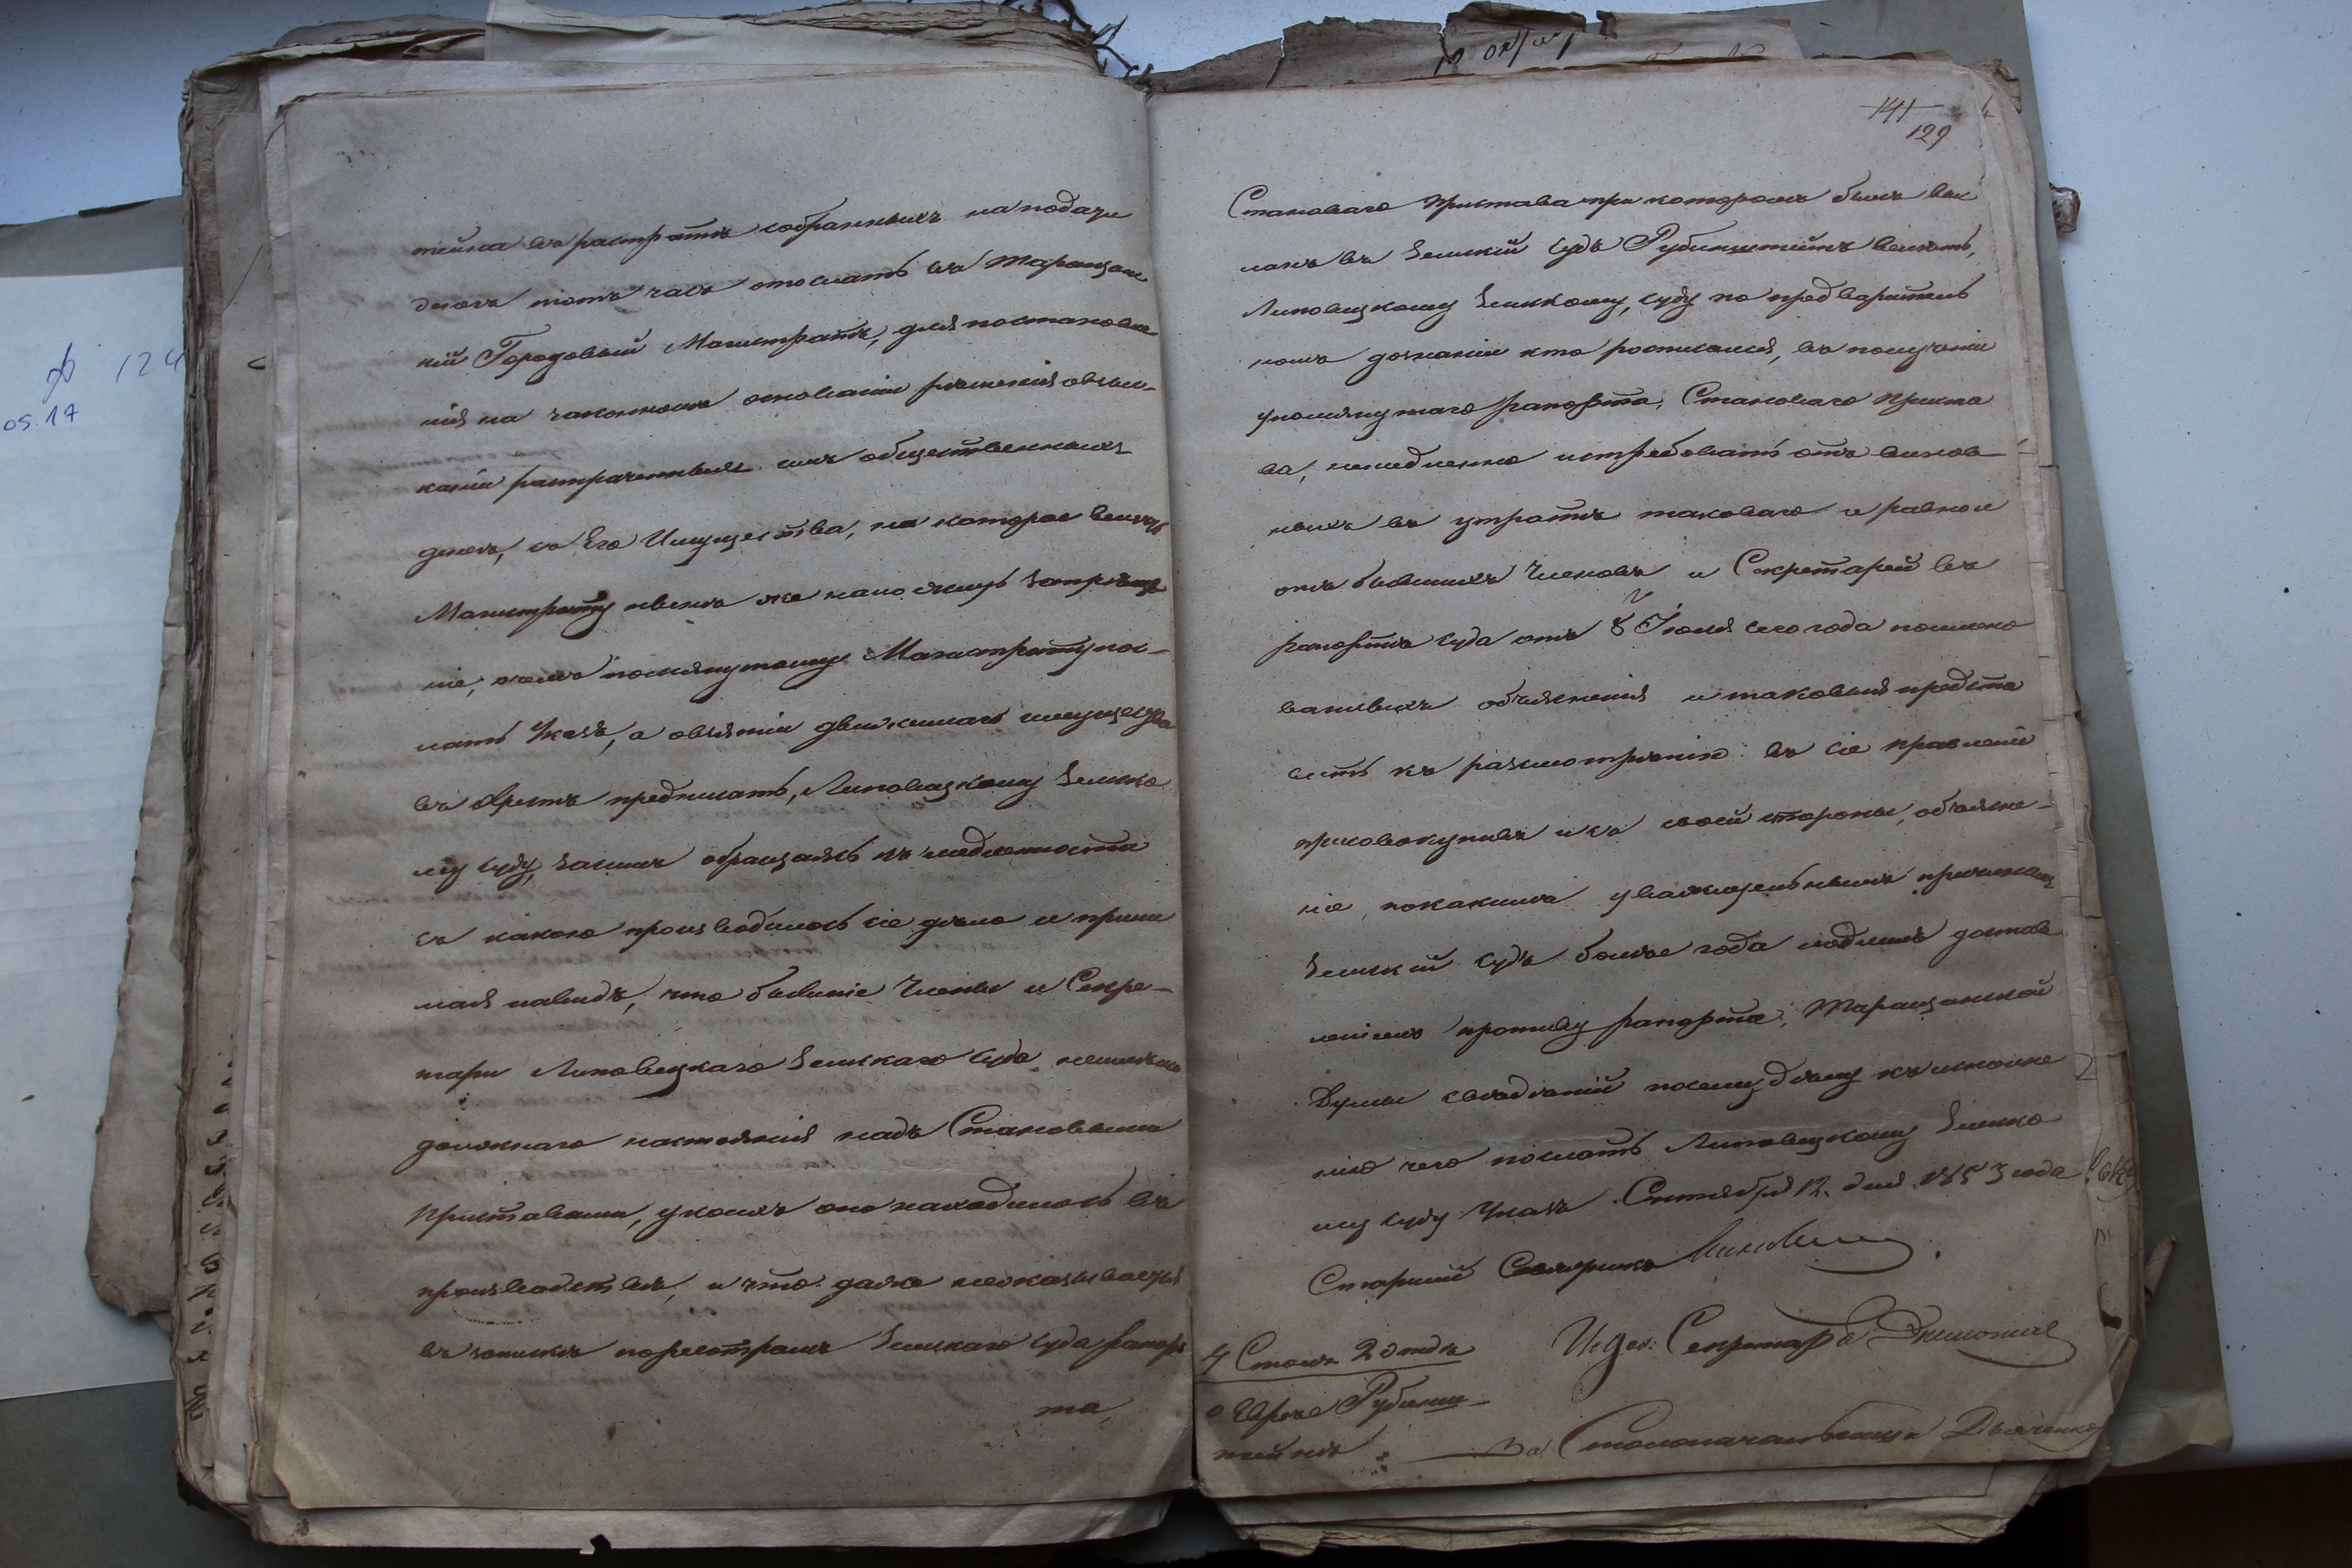 тейна въ растратѣ собранныхъ на подати
денегъ тотъ часъ отослать въ Таращанс
кій Городовый Магистратъ, для постановле-
нія на законномъ основаніи рѣшенія овзыс-
каніи растраченныхъ имъ общественныхъ
денегъ, съ Его Имущества, на которое велѣть
Магистрату нынѣ же наложить запреще
ніе, очемъ помянутому Магистрату пос-
лать Указъ, а овзятіи движимаго имущества
въ Арестъ предписать, Липовецкому Земско
му суду, засимъ обращаясь къ медленности
съ какою производилось сіе дѣло и прини
мая навидъ, что бывшіе Члены и Секре-
тари Липовецкаго Земскаго суда неимѣли
должнаго настоянія надъ Становыми
Приставами, укоихъ оно находилось въ
производствѣ, и что даже неоказывается
въ запискѣ пореестрамъ Земскаго суда рапор
та,
141
129
Становаго Пристава при которомъ былъ выс
ланъ въ Земскій судъ Рубинштейнъ велѣть,
Липовецкому Земскому, суду по предваритель
номъ дознаніи кто росписался, въ полученіи
упомянутаго рапорта, Становаго Приста
ва, немедленно истребовать отъ винов-
ныхъ въ утратѣ таковаго и равно и
отъ бывшихъ Членовъ и Секретарей въ
рапортѣ суда отъ 8 Іюля сего года поимено
ванныхъ объясненія и таковыя предста
вить къ разсмотренію въ сіе Правленіе
присовокупивъ и съ своей стороны, объясне-
ніе, покакимъ уважительнымъ причинамъ
Земскій судъ болѣе года медлилъ достав
леніемъ противу рапорта, Таращанской
Думы свѣдѣній посему дѣлу къ исполне
нію чего послать Липовецкому Земско
му суду Указъ Сентября 12. дня 1853 года
Старшій Совѣтникъ
Исдол: Секретарь
4 Столъ 2 отдѣ
о Евреѣ Рубинш-
тейнѣ
За Столоначальника Дьяченко